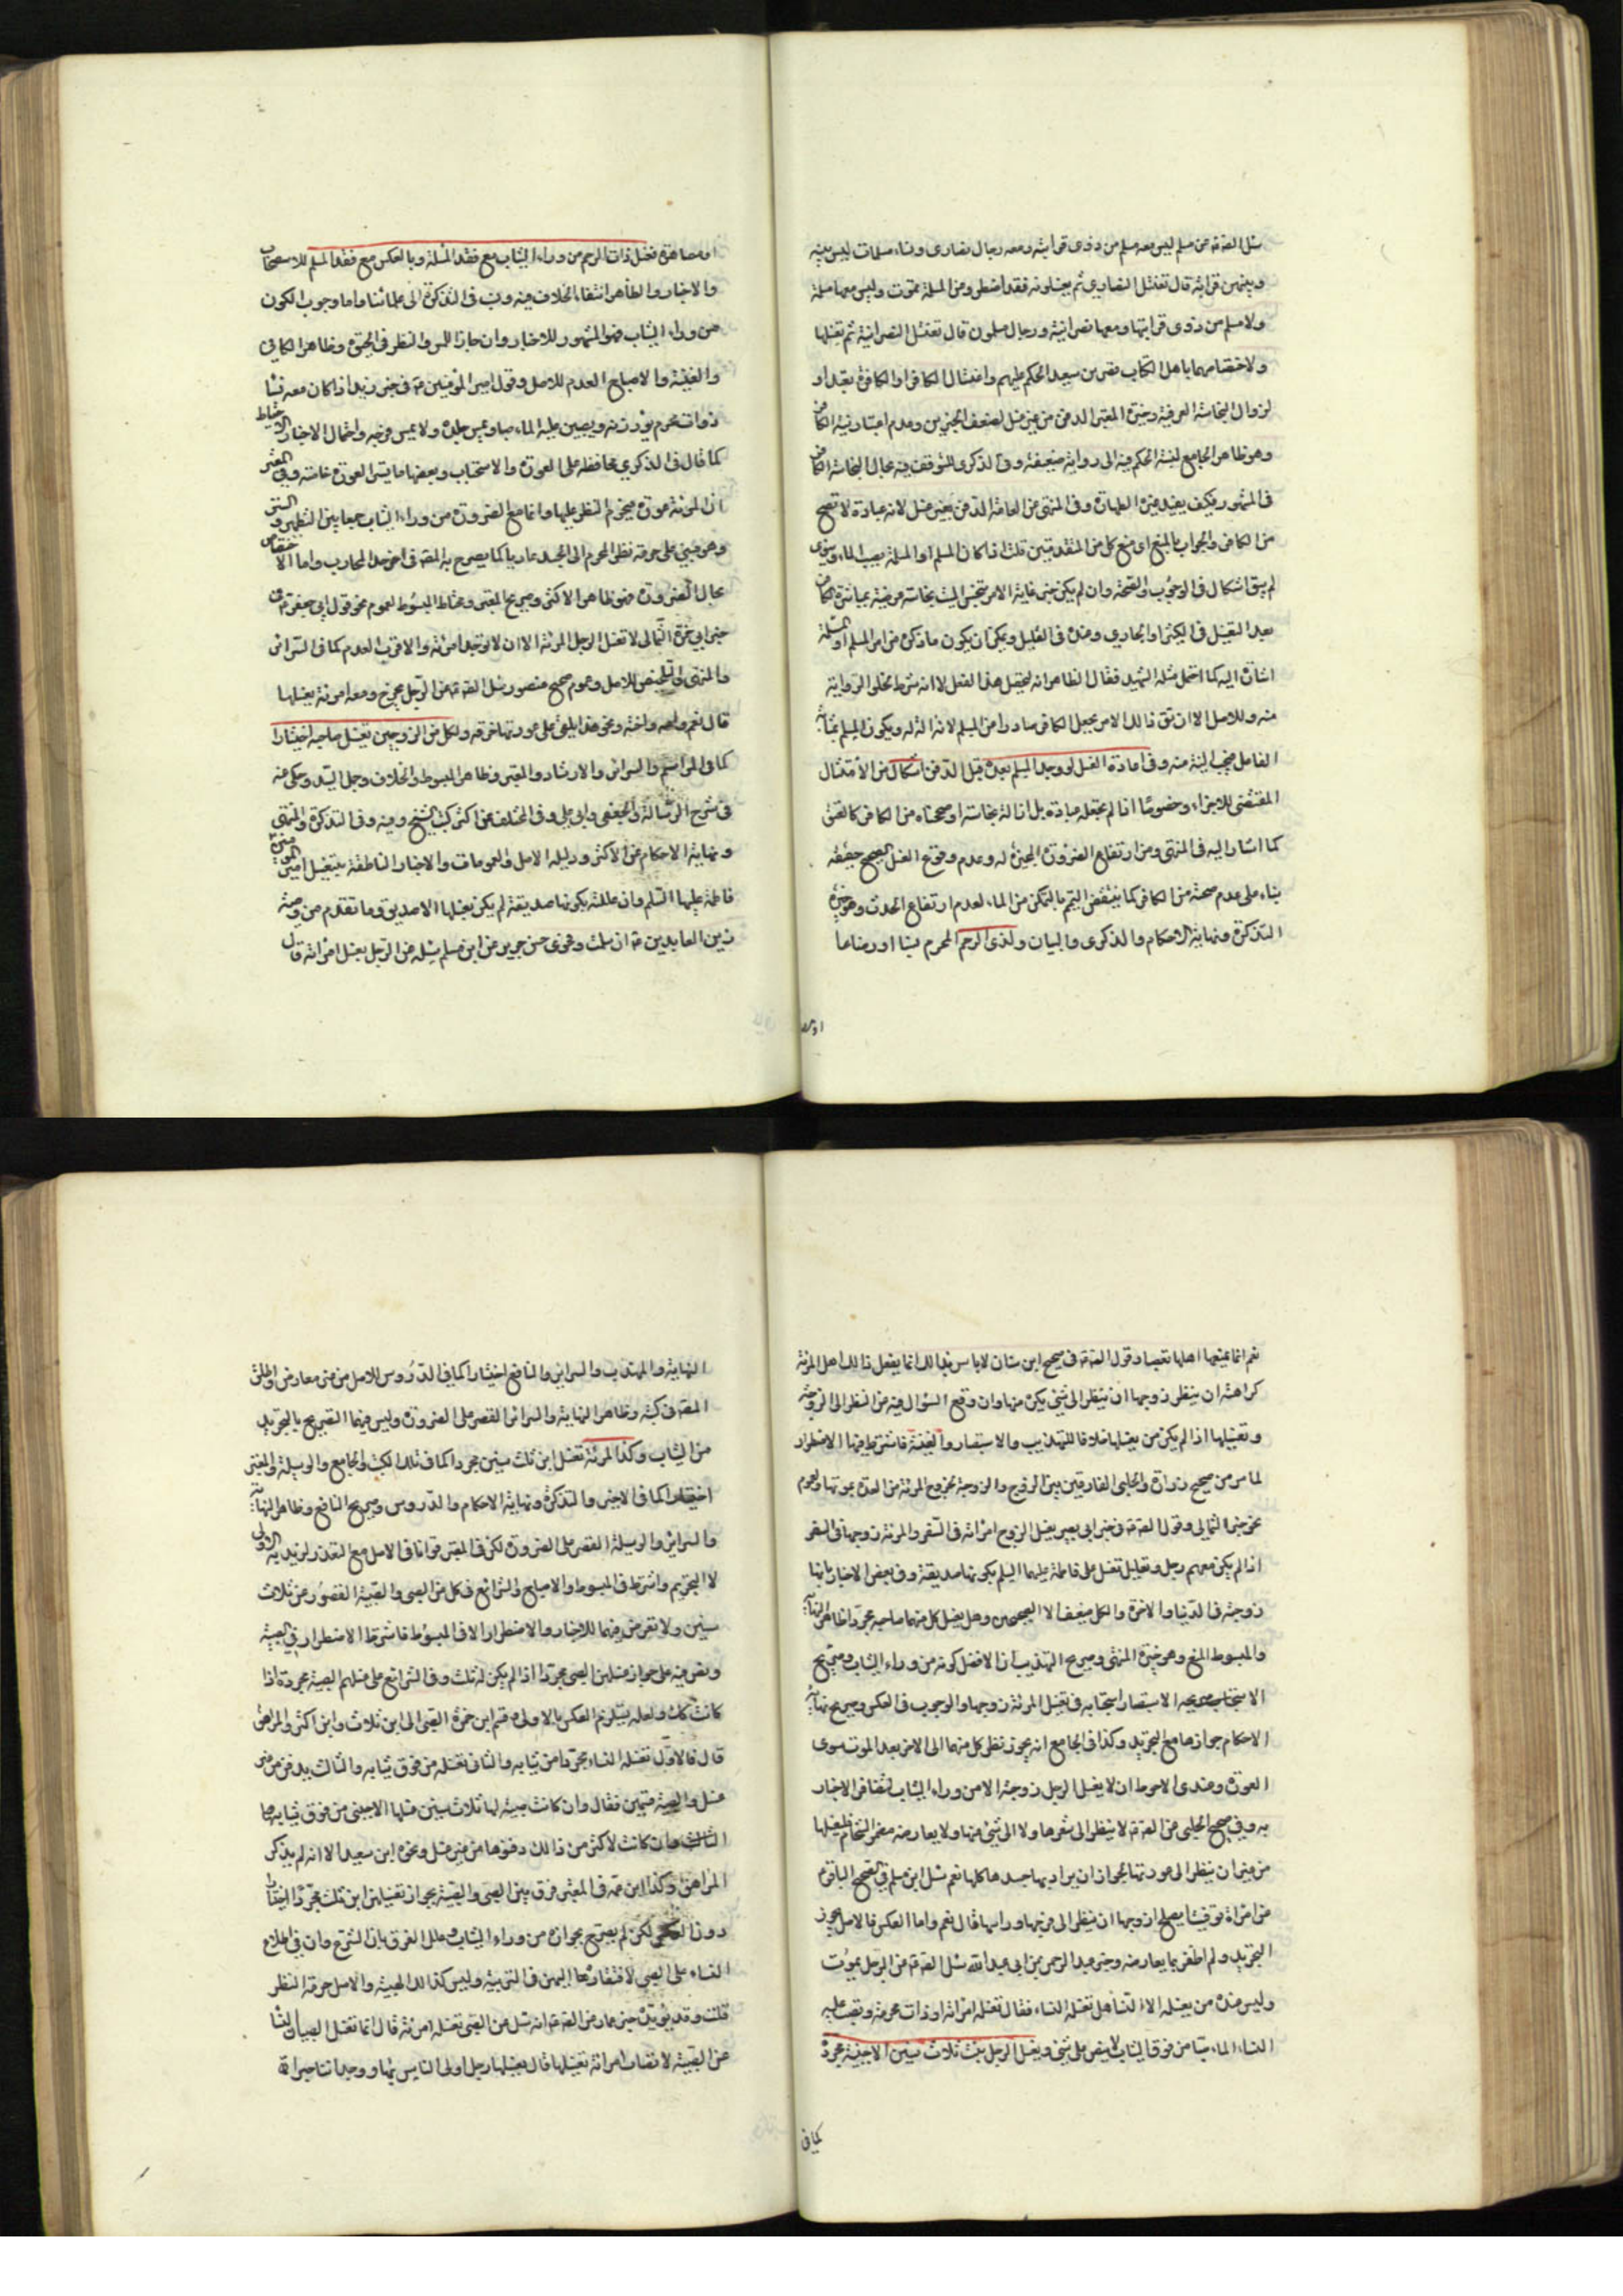 سئل الصادق عن مسلم ليس معه مسلم من ذوي قرابته ومعه رجال نصارى ونساء مسلمات ليس بينه
وبينهن قرابة قال تغتسل النصارى ثم يغسلونه فقد اضطر وعن المسلمة تموت وليس معها مسلمة
ولا مسلم من ذوي قرابتها ومعها نصرانية ورجال مسلمون قال تغتسل النصرانية ثم تغسلها
ولاختصاصهما باهل الكتاب قصر ابن سعيد الحكم عليهم واغتسال الكافر او الكافرة تعبد او
لزوال النجاسة العرفية وخيرة المعتبر الدفن من غير غسل لضعف الخبرين وعدم اعتبار نية الكافر
وهو ظاهر الجامع لنسبة الحكم فيه الى رواية ضعيفة وفي الذكرى للتوقف فيه مجال لنجاسة الكافر
في المشهور فكيف يفيد غيره الطهارة وفي المنتهى عن العامة الدفن بغير غسل لانه عبادة لا تصح
من الكافر والجواب بالمنع اي منع كل من المقدمتين قلت اذا كان المسلم او المسلمة يصب الماء وينوي
لم يبق اشكال في الوجوب والصحة وان لم يكن خبر غاية الامر تنجس الميت بنجاسة عرضية بمباشرة الكافر
بعيد التغسيل في الكثير او الجاري وعنده في القليل ويمكن ان يكون ما ذكره من امر المسلم او المسلمة
اشارة اليه كما احتمل مثله الشهيد فقال الظاهر انه لتحصيل هذا الغسل لا انه شرط لخلو الرواية
منه وللاصل الا ان يقال ذلك الامر يجعل الكافر صادرا عن المسلم لانه آلة له ويكون المسلم بمثابة
الفاعل فيجب النية منه وفي اعادة الغسل لو وجد المسلم بعده قبل الدفن اشكال من الامتثال
المقتضي للاجزاء وخصوصا اذا لم نجعله عبادة بل ازالة نجاسة او صححناه من الكافر كالعتق
كما اشار اليه في المنتهى ومن ارتفاع الضرورة المجيزة له وعدم وقوع الغسل الصحيح حقيقة
بناء على عدم صحته من الكافر كما ينتقض التيمم بالتمكن من الماء لعدم ارتفاع الحدث وهو خيرة
التذكرة ونهاية الاحكام والذكرى والبيان ولذي الرحم المحرم نسبا او رضاعا
او مصا
او مصاهرة تغسل ذات الرحم من وراء الثياب مع فقد المسلمة وبالعكس مع فقد المسلم للاستصحاب
والاخبار والظاهر انتفاء الخلاف فيه ونسب في التذكرة الى علمائنا واما وجوب الكون
من وراء الثياب فهو المشهور للاخبار وان جاز اللمس والنظر في الحيوة وظاهر الكافي
والغنية والاصباح العدم للاصل وقول امير المؤمنين في خبر زيد اذا كان معه نساء
ذوات محرم يؤزرنه ويصببن عليه الماء صبا ويمسسن جلده ولا يمسسن فرجه واحتمال الاخبار الاحتياط
كما قال في الذكرى محافظة على العورة والاستحباب وبعضها ما يستر العورة خاصة وفي المعتبر
ان المرئة عورة فيحرم النظر عليها وانما مع الضرورة من وراء الثياب جمعا بين التطهير والستر
وهو مبني على حرمة نظر المحرم الى الجسد عاريا كما يصرح به المصنف في اخر حد المحارب واما الاختصاص
بحال الضرورة فهو ظاهر الاكثر وصريح المعتبر ومحتاط المبسوط لعموم نحو قول ابي جعفر في
خبر ابي حمزة الثمالي لا تغسل الرجل المرئة الا ان لا توجد امرئة والاقرب العدم كما في السرائر
والمنتهى والتلخيص للاصل وعموم صحيح منصور سئل الصادق عن الرجل يخرج ومعه امرئة يغسلها
قال نعم وامه واخته ونحو هذا يلقي على عورتها خرقة ولكل من الزوجين تغسيل صاحبه اختيارا
كما في المراسم والسرائر والارشاد والمعتبر وظاهر المبسوط والخلاف وجمل السيد وحكى عنه
في شرح الرسالة والجعفي وابي علي وفي المختلف عن اكثر كتب الشيخ وفيه وفي التذكرة والمنتهى
ونهاية الاحكام عن الاكثر ودليله الاصل والعمومات والاخبار الناطقة بتغسيل امير المؤمنين
فاطمة عليهما السلام وان عللته بكونها صديقة لم يكن يغسلها الا صديق وما تقدم من وصية
زين العابدين ان سلمت ونحوى حسن حريز عن ابن مسلم سئله عن الرجل يغسل امرأته قال
نعم انما يمنعها اهلها تعصبا وقول الصادق في صحيح ابن سنان لا باس بذلك انما يفعل ذلك اهل المرئة
كراهة ان ينظر زوجها الى شيء يكرهونه منها وان وقع السؤال فيه عن النظر الى الزوجة
وتغسيلها اذا لم يكن من يغسلها خلافا للتهذيب والاستبصار والغنية فاشترط فيها الاضطرار
لما مر من صحيح زرارة والحلبي الفارقين بين الزوج والزوجة بخروج المرئة من العدة بموتها ولعموم
نحو خبر الثمالي وقول الصادق في خبر ابي بصير يغسل الزوج امرأته في السفر والمرئة زوجها في السفر
اذا لم يكن معهم رجل وتعليل تغسيل علي فاطمة عليهما السلام بكونها صديقة وفي بعض الاخبار بانها
زوجته في الدنيا والاخرة والكل ضعيف الا الصحيحين وهل يغسل كل منهما صاحبه مجردا ظاهر النهاية
والمبسوط المنع وهو خيرة المنتهى وصريح التهذيب ان الافضل كونه من وراء الثياب وصريح
الاستبصار استحبابه في تغسيل المرئة زوجها والوجوب في العكس وصريح نهاية
الاحكام جوازهما مع التجريد وكذا في الجامع انه يجوز نظر كل منهما الى الاخر بعد الموت سوى
العورة وعندي الاحوط ان لا يغسل الرجل زوجته الا من وراء الثياب لتظافر الاخبار
به وفي صحيح الحلبي عن الصادق لا ينظر الى شعرها ولا الى شيء منها ولا يعارضه مضمر الشحام فليغسلها
من غير ان ينظر الى عورتها لجواز ان يراد بها جسدها كلها نعم سئل ابن مسلم في الصحيح الباقر
عن امرأة توفيت ايصلح لزوجها ان ينظر الى وجهها وراسها قال نعم واما العكس فالاصل يجوز
التجريد ولم اظفر بما يعارضه وخبر عبد الرحمن بن ابي عبد الله سئل الصادق عن الرجل يموت
وليس عنده من يغسله الا النساء هل تغسله النساء فقال تغسله امرأته او ذات محرمه وتصب عليه
النساء الماء صبا من فوق الثياب لا ينص على شيء ويغسل الرجل بنت ثلاث سنين الاجنبية مجردة
كما في
النهاية والمهذب والسرائر والنافع اختيارا كما في الدروس للاصل من غير معارض واطلق
المصنف في كتبه وظاهر النهاية والسرائر القصر على الضرورة وليس فيهما التصريح بالتجريد
من الثياب وكذا المرئة تغسل ابن ثلث سنين مجردا كما في تلك الكتب والجامع والوسيلة والمعتبر
اختيارا كما في الاخير والتذكرة ونهاية الاحكام والدروس وصريح النافع وظاهر النهاية
والسرائر والوسيلة القصر على الضرورة لكن في المعتبر
لا التحريم واشترط في المبسوط والاصباح والشرائع في كل من الصبي والصبية القصور عن ثلاث
سنين ولا تعرض فيهما للاخبار والاضطرار الا في المبسوط فاشترط الاضطرار في الصبية
ونص فيه على جواز غسلهن الصبي مجردا اذا لم يكن له ثلث وفي الشرائع على غسلهم الصبية مجردة اذا
كانت كك ولعله يستلزم العكس بالاولى وقسم ابن حمزة الصبي الى ابن ثلاث وابن اكثر والمراهق
قال فالاول تغسله النساء مجردا من ثيابه والثاني تغسله من فوق ثيابه والثالث يدفن من غير
غسل والصبية قسمين فقال وان كانت صبية لها ثلاث سنين غسلها الاجنبي من فوق ثيابها
وان كانت لاكثر من ذلك دفنوها من غير غسل ونحوه ابن سعيد الا انه لم يذكر
المراهق وكذا ابن عمه في المعتبر فرق بين الصبي والصبية بجواز تغسيلهن ابن ثلث مجردا اختيارا
دون العكس لكن لم يصرح بجوازه من وراء الثياب وعلل الفرق بان الشرع اذن في اطلاع
النساء على الصبي لافتقاره اليهن في التربية وليس كذلك الصبية والاصل حرمة النظر
قلت وقد يؤيده خبر عمار عن الصادق انه سئل عن الصبي تغسله امرئة قال انما تغسل الصبيان النساء
عن الصبية لا تصاب امرأة تغسلها قال يغسلها رجل اولى الناس بها ووجدا